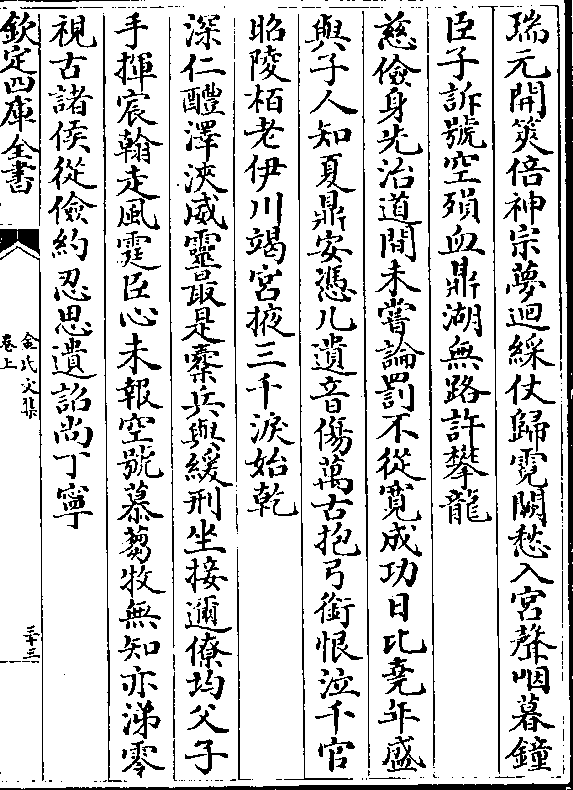 瑞元開筴倍神宗夢迴綵仗歸霓闕愁入宮聲咽暮鐘
臣子訴號空殞血鼎湖無路許攀龍
慈儉身先治道間未嘗論罰不從寛成功日比堯年盛
與子人知夏鼎安憑几遺音傷萬古抱弓銜恨泣千官
昭陵栢老伊川竭宮掖三千淚始乾
深仁醲澤浹威靈最是櫜兵與緩刑坐接邇僚均父子
手揮宸翰走風霆臣心未報空號慕蒭牧無知亦涕零
視古諸侯從儉約忍思遺詔尚丁寧
欽定四庫全書
金氏文集
卷上
三十三